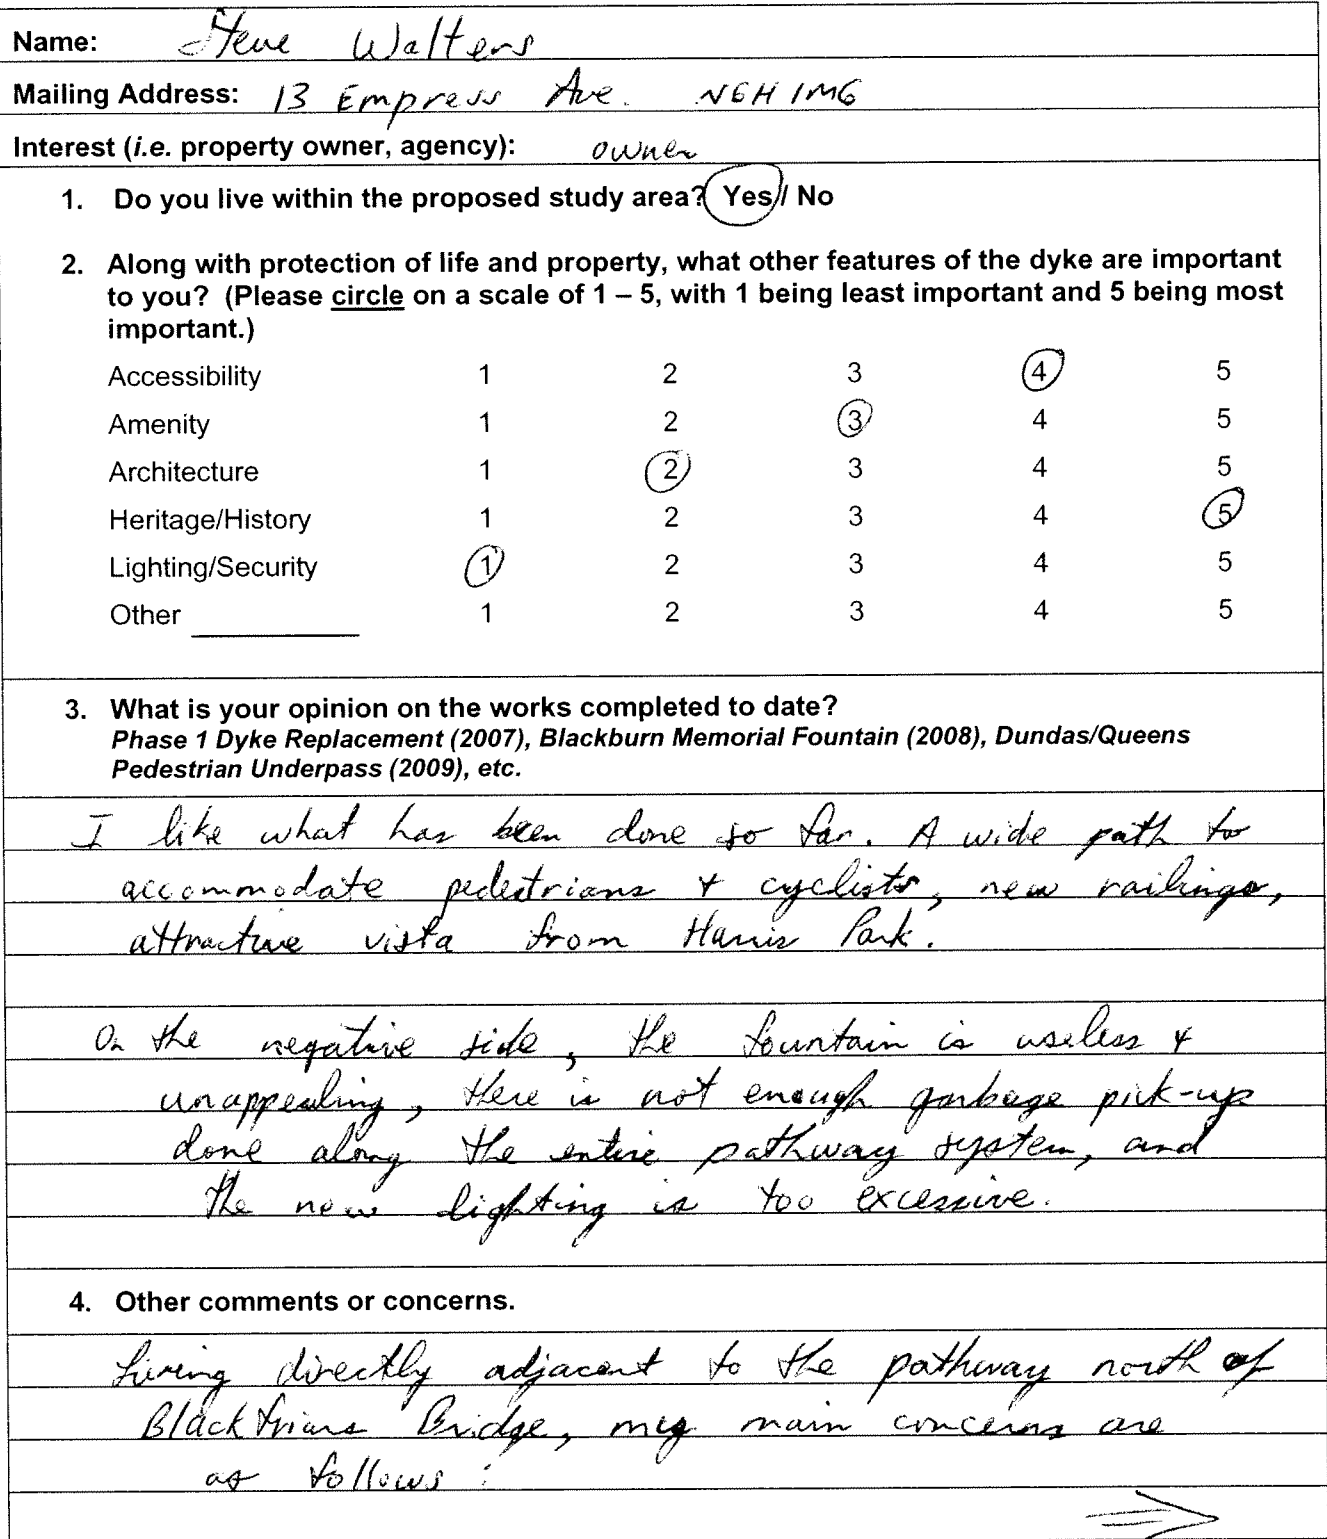 Name: Steve Walters
Mailing Address: 13 Empress Ave. N6H 1M6
Interest (i.e. property owner, agency): owner
1. Do you live within the proposed study area? Yes / No
2. Along with protection of life and property, what other features of the dyke are important
to you? (Please circle on a scale of 1 – 5, with 1 being least important and 5 being most
important.)
Accessibility 1 2 3 4 5
Amenity 1 2 3 4 5
Architecture 1 2 3 4 5
Heritage/History 1 2 3 4 5
Lighting/Security 1 2 3 4 5
Other 1 2 3 4 5
3. What is your opinion on the works completed to date?
Phase 1 Dyke Replacement (2007), Blackburn Memorial Fountain (2008), Dundas/Queens
Pedestrian Underpass (2009), etc.
I like what has been done so far. A wide path to
accommodate pedestrians + cyclists, new railings,
attractive vista from Harris Park.
On the negative side, the fountain is useless +
unappealing, there is not enough garbage pick-up
done along the entire pathway system, and
the new lighting is too excessive.
4. Other comments or concerns.
Living directly adjacent to the pathway north of
Blackfriars Bridge, my main concerns are
as follows: